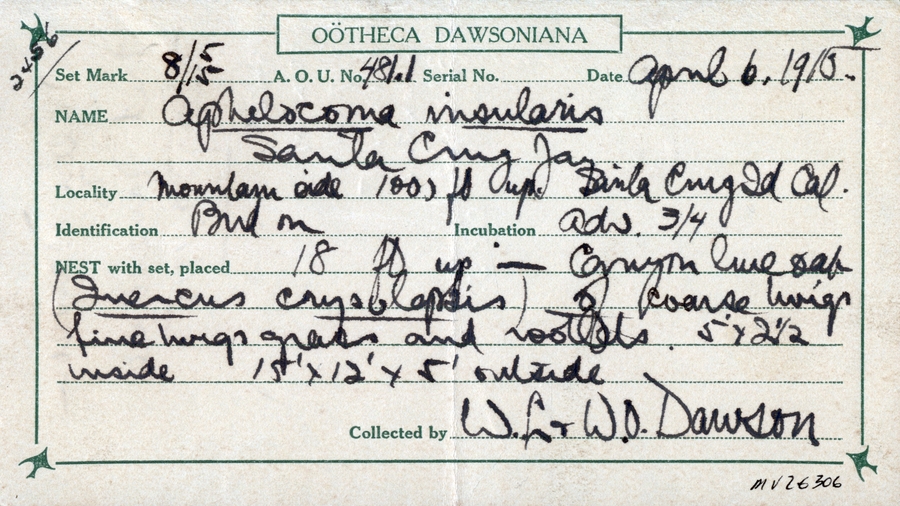 OÖTHECA DAWSONIANA
2456
Set Mark 8/15 A. O. U. No. 481.1 Serial No. Date April 6, 1915.
NAME Aphelocoma insularis
Santa Cruz Jay
Locality Mountain side 1000 ft up. Santa Cruz Id Cal.
Identification Bird on Incubation adv. 3/4
NEST with set, placed 18 ft up — Canyon live oak
(Quercus crysolepsis) of coarse twigs
fine twigs grass and rootlets. 5" x 2 1/2
inside 15" x 12" x 5" outside
Collected by W. L. + W. O. Dawson
MVZ 6306